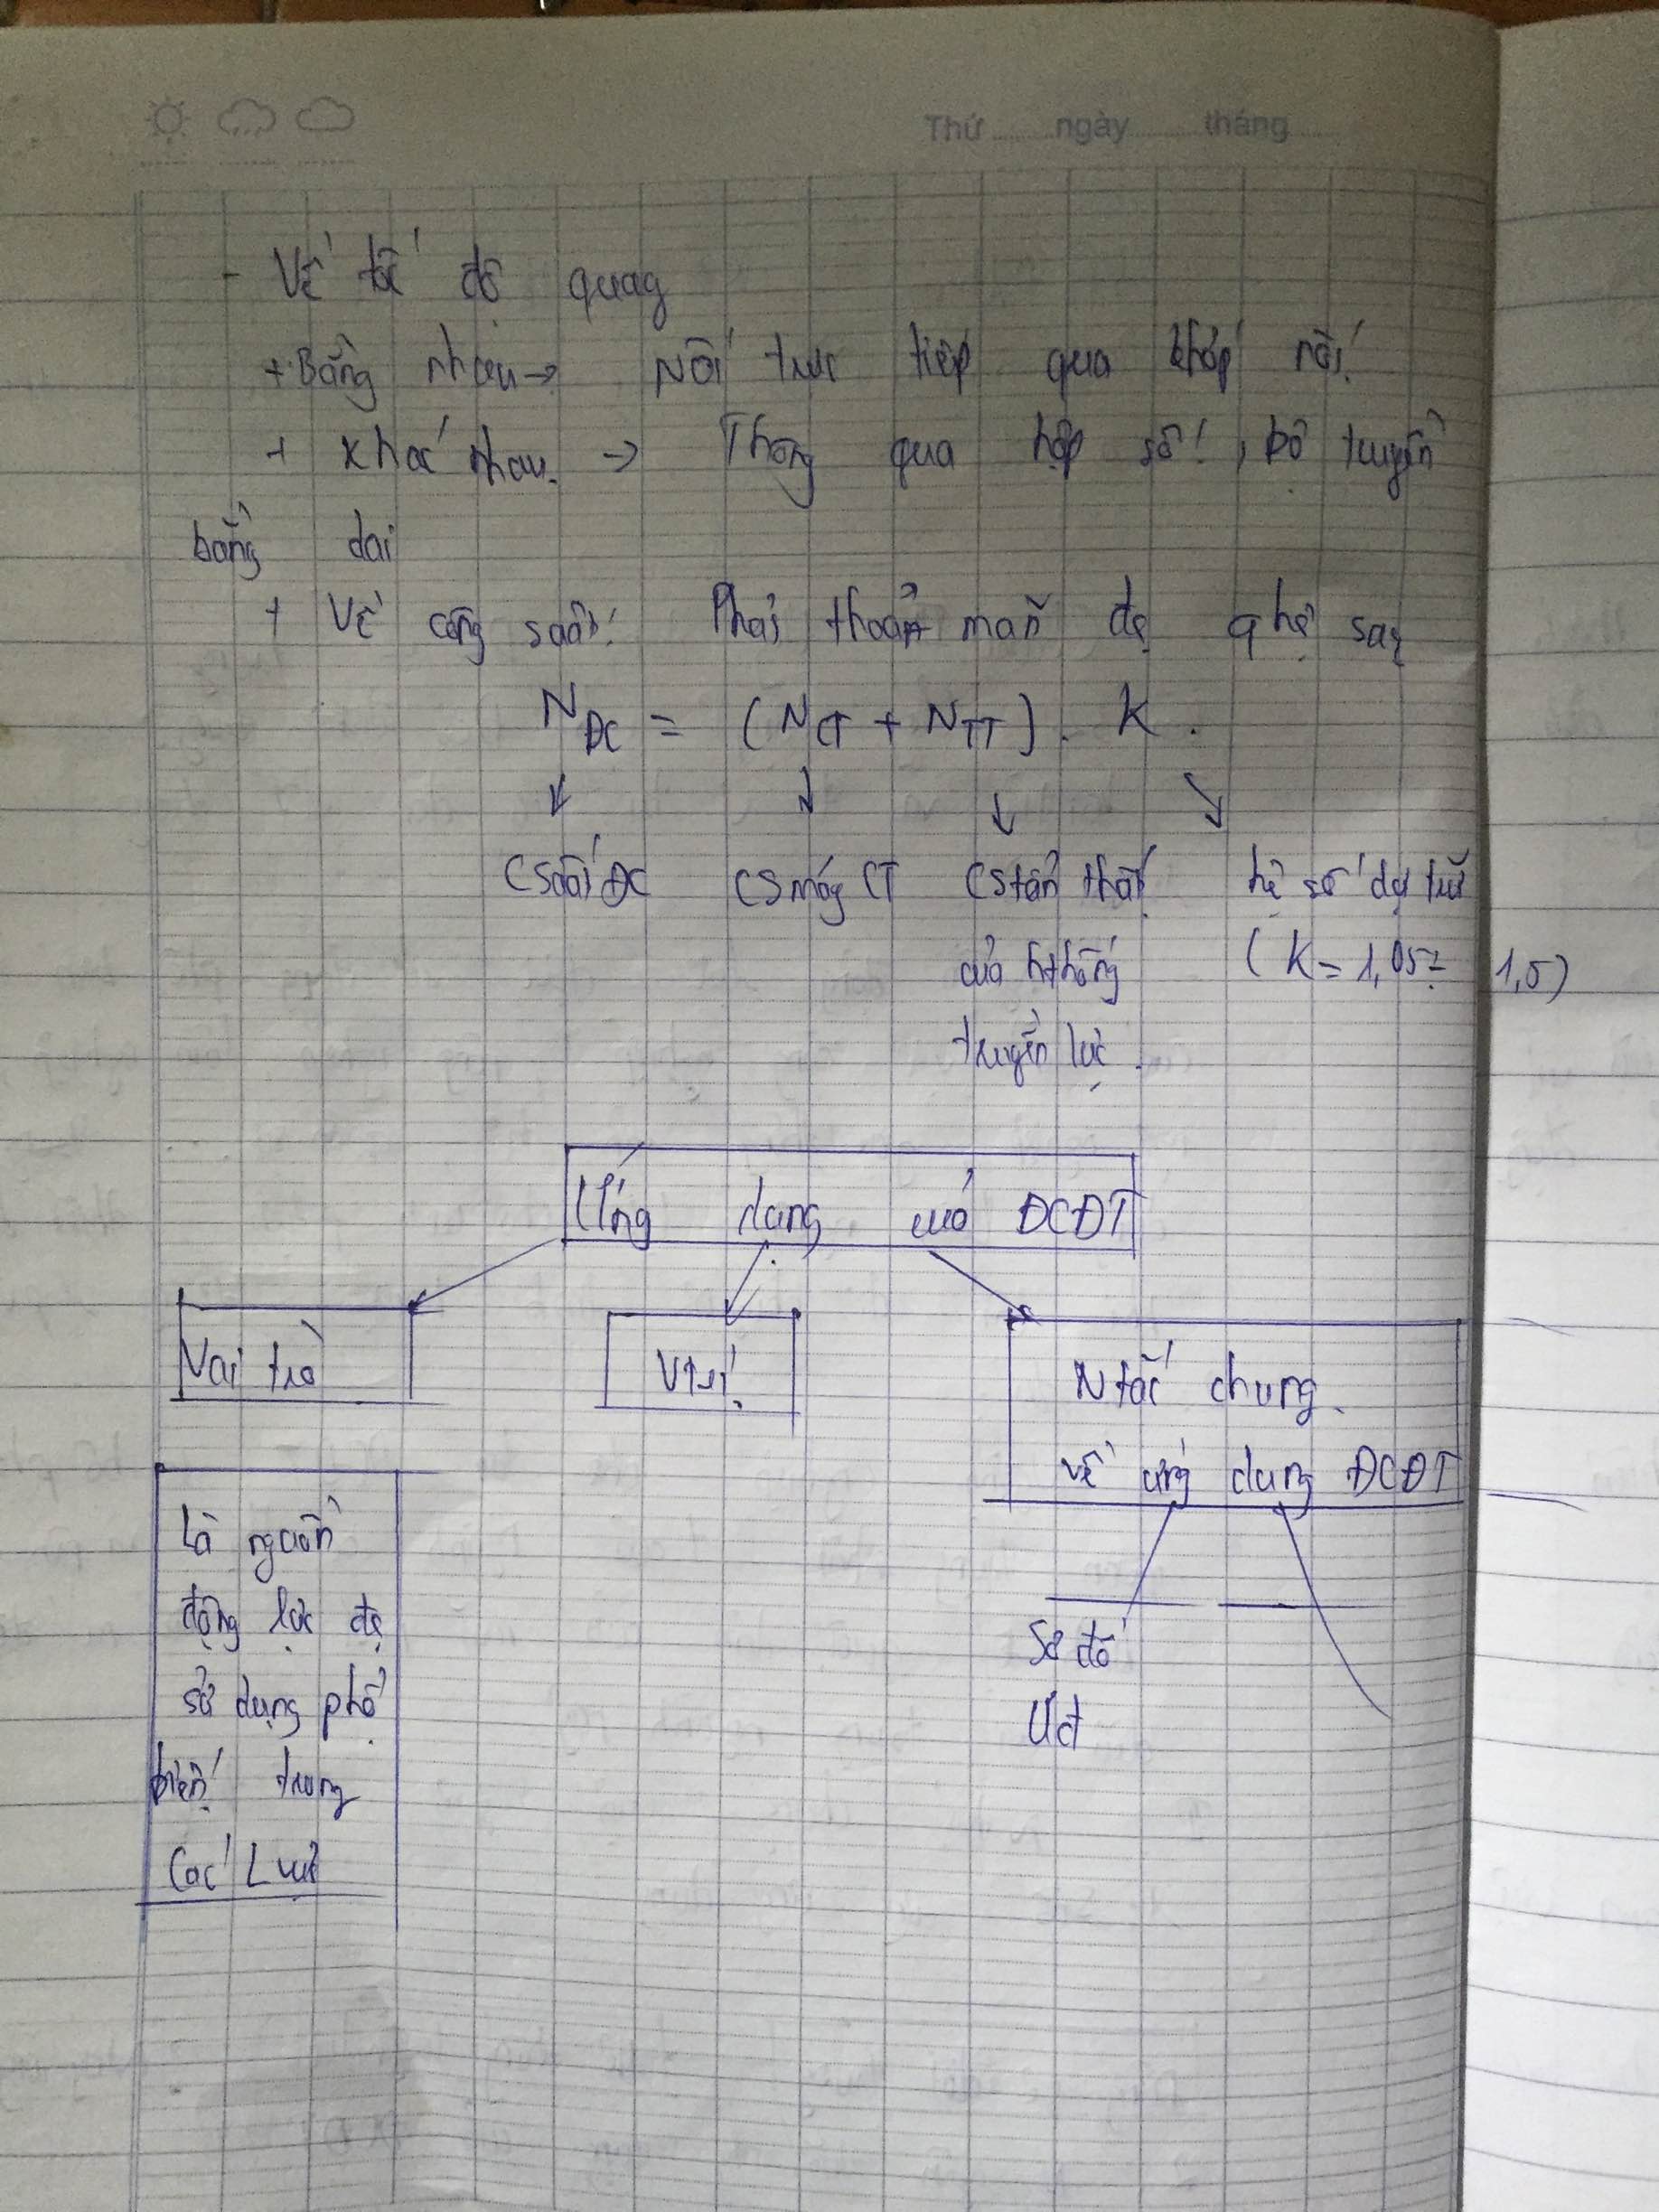 Thứ ngày tháng
- Về tốc độ quay
+ Bằng nhau → Nối trực tiếp qua khớp nối
+ Khác nhau. → Thông qua hộp số, bộ truyền
bằng đai
+ Về công suất: Phải thoả mãn đk qhệ sau
NĐC = (NCT + NTT). K.
Csuất ĐC CS máy CT CS tổn thất hệ số dự trữ
của hthống (K = 1,05 ÷ 1,5)
truyền lực.
Ứng dụng của ĐCĐT
Vai trò Vtrí Ntắc chung
về ứng dụng ĐCĐT
Là nguồn
động lực đc
sử dụng phổ
biến trong
Các Lvực
Sơ đồ
Ưd